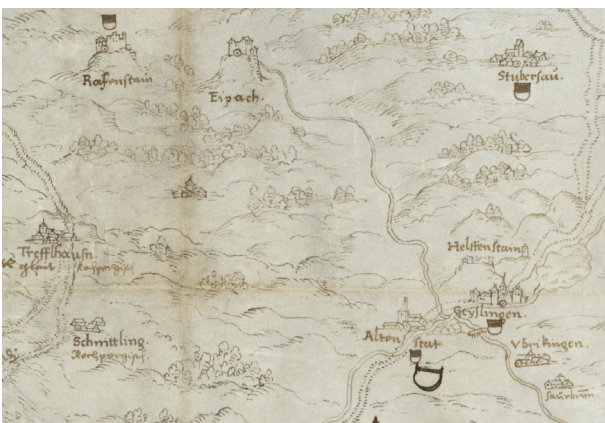 Rafenstain
Eipach.
Stubersau.
Trefflhausn.
Helffenstain
Geyslingen.
Schnittling
Alten stat
Vbrikingen.
Saurbrun